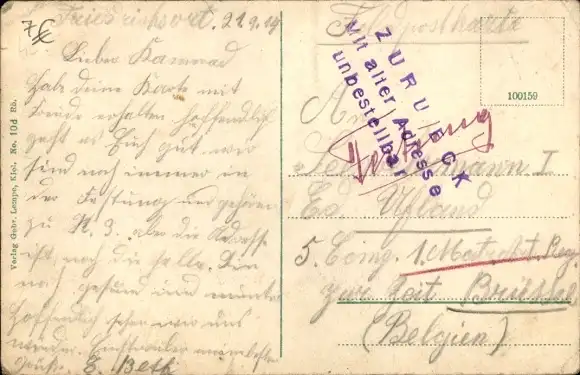 7 €
Friedrichsort, 21.9.14
Lieber Kamerad
habe deine Karte mit
Freude erhalten hoffendlich
geht es Euch gut, wir
sind noch immer in
der Festung und gehören
zu N. 3. aber die Adresse
ist noch die
noch gesund und munter
hoffendlich sehen wir uns
wieder.
E. Beth
Verlag Gebr. Lempe, Kiel. No. 10d Rb.
Feldpostkarte
ZURUECK
Mit alter Adresse
unbestellbar
100159
An
I
Ed. Ufland
5. Comg. 1. Mat. Art. Reg.
zur Zeit Brüssel
(Belgien)